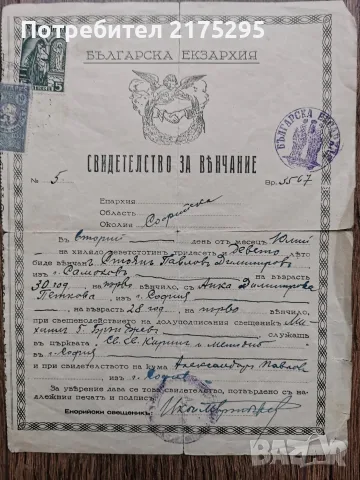 2175295
БЪЛГАРСКА ЕКЗАРХИЯ
БЪЛГАРСКА
СВИДЕТЕЛСТВО ЗА ВѢНЧАНИЕ
№ 5 Вр. 3567
Епархия
Область Софийска
Околия
Въ втория день отъ месец Юлий
на хилядо деветстотинъ тридесеть девето лѣто
биде вѣнчанъ Стоянъ Павловъ Димитровъ
изъ г. Самоковъ на възрасть
30 год. първо вѣнчило, съ Анка Димитрова
Пенкова изъ г. София
на възрасть 28 год. на първо вѣнчило,
при свещенодействието на долуподписания свещеникъ
служащъ
въ църквата Св. Св. Кирилъ и Методий въ
г. София
и при свидетелството на кума Александъръ Павловъ
изъ г. София
За уверение дава се това свидетелство, потвърдено съ на-
длежния печатъ и подписъ.
Енорийски свещеникъ:
bazar.bg